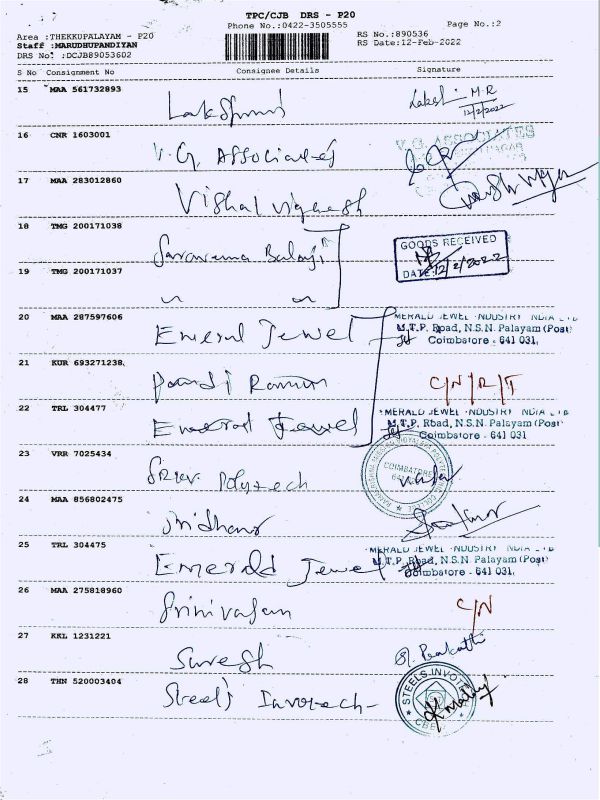 TPC/CJB DRS - P20
Phone No.:0422-3505555
Page No.:2
Area :THEKKUPALAYAM - P20
RS No.:890536
Staff :MARUDHUPANDIYAN
RS Date:12-Feb-2022
DRS No: :DCJB89053602
S No Consignment No Consignee Details Signature
15 MAA 561732893 Lakshmi Lakshmi M.R
12/2/2022
16 CNR 1603001 V.G. Associates V.G. ASSOCIATES
17 MAA 283012860 Vishal Vignesh
18 TMG 200171038 Saravana Balaji GOODS RECEIVED
DATE: 12/2/2022
19 TMG 200171037 " "
20 MAA 287597606 Emerald Jewel MERALD JEWEL INDUSTRY INDIA LTD
M.T.P. Road, N.S.N. Palayam (Post)
Coimbatore - 641 031.
21 KUR 693271238 C/N/R/T
22 TRL 304477 Emerald Jewel MERALD JEWEL INDUSTRY INDIA LTD
M.T.P. Road, N.S.N. Palayam (Post)
Coimbatore - 641 031
23 VRR 7025434 Polytech COIMBATORE
24 MAA 856802475
25 TRL 304475 Emerald Jewel MERALD JEWEL INDUSTRY INDIA LTD
M.T.P. Road, N.S.N. Palayam (Post)
Coimbatore - 641 031.
26 MAA 275818960 Srinivasan C/N
27 KKL 1231221 Suresh
28 THN 520003404 Steels Invotech STEELS INVOTE
CBE